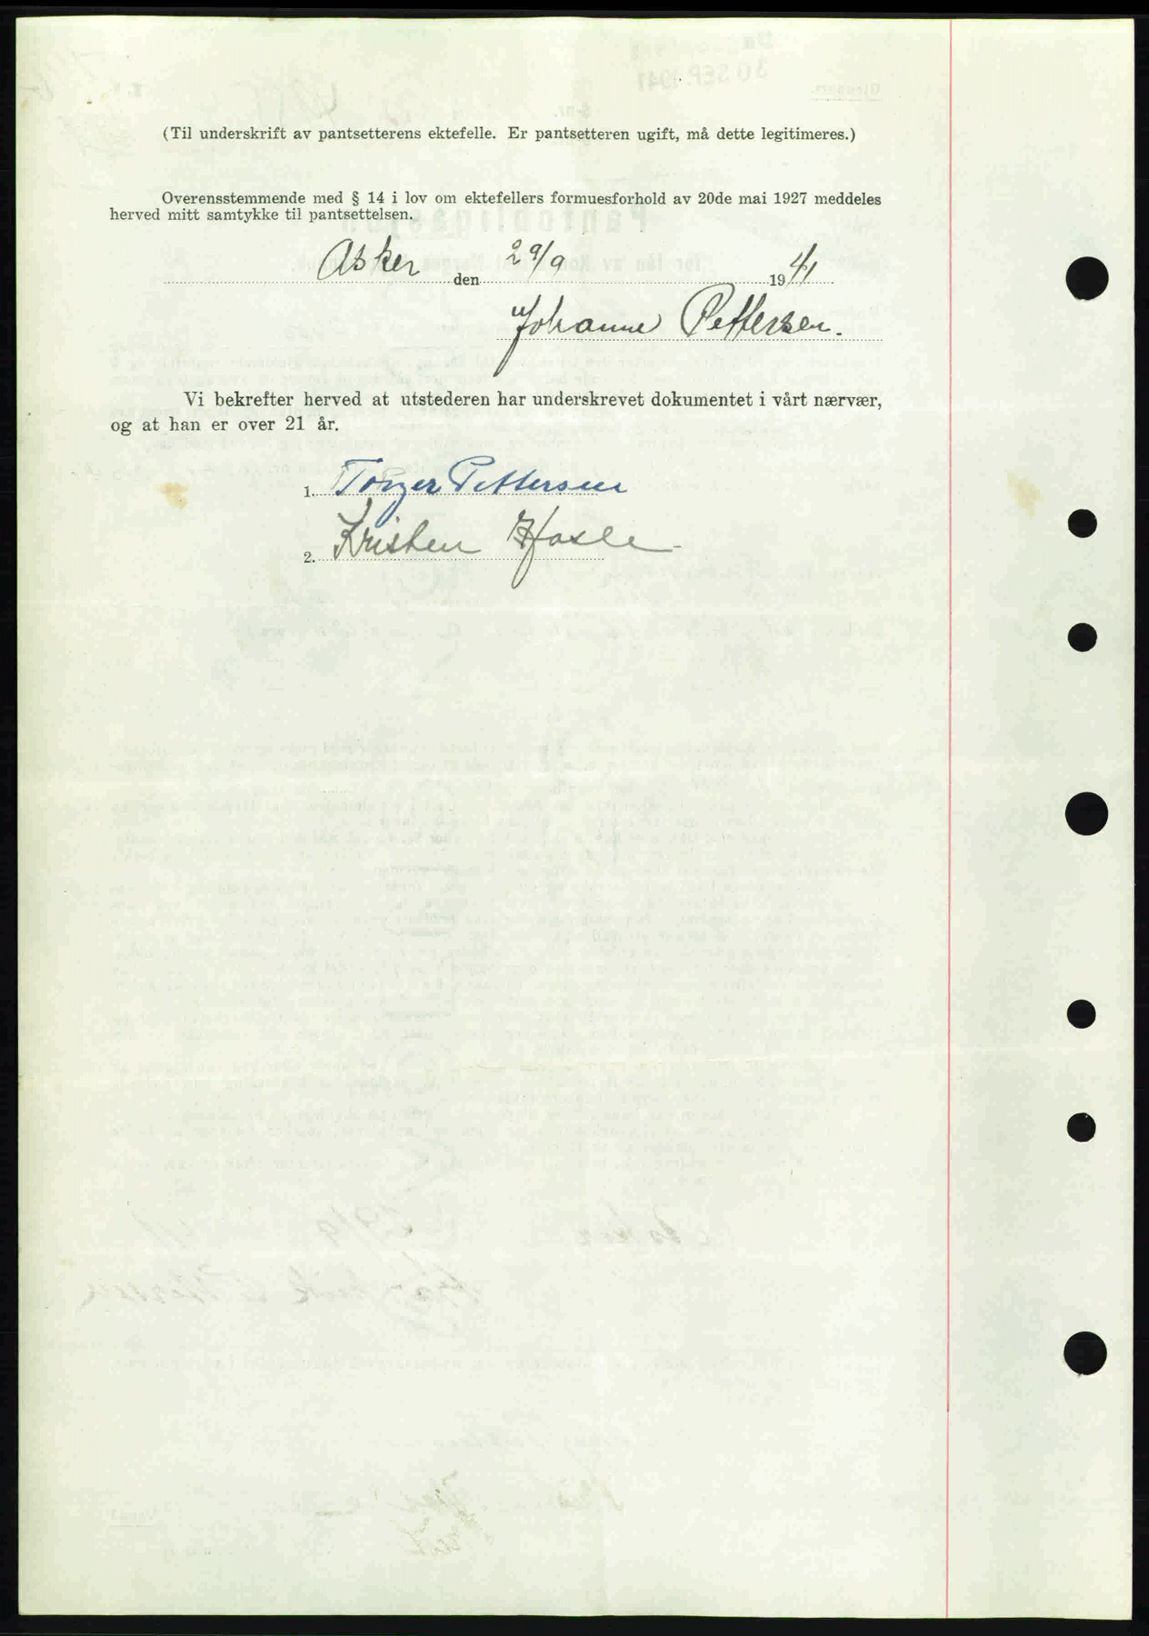 (Til underskrift av pantsetterens ektefelle. Er pantsetteren ugift, må dette legitimeres.)
Overensstemmende med § 14 i lov om ektefellers formuesforhold av 20de mai 1927 meddeles
herved mitt samtykke til pantsettelsen.
Asker den 29/9 1941
Johanne Pettersen.
Vi bekrefter herved at utstederen har underskrevet dokumentet i vårt nærvær,
og at han er over 21 år.
1. Torger Pettersen
2. Kristen Hasle